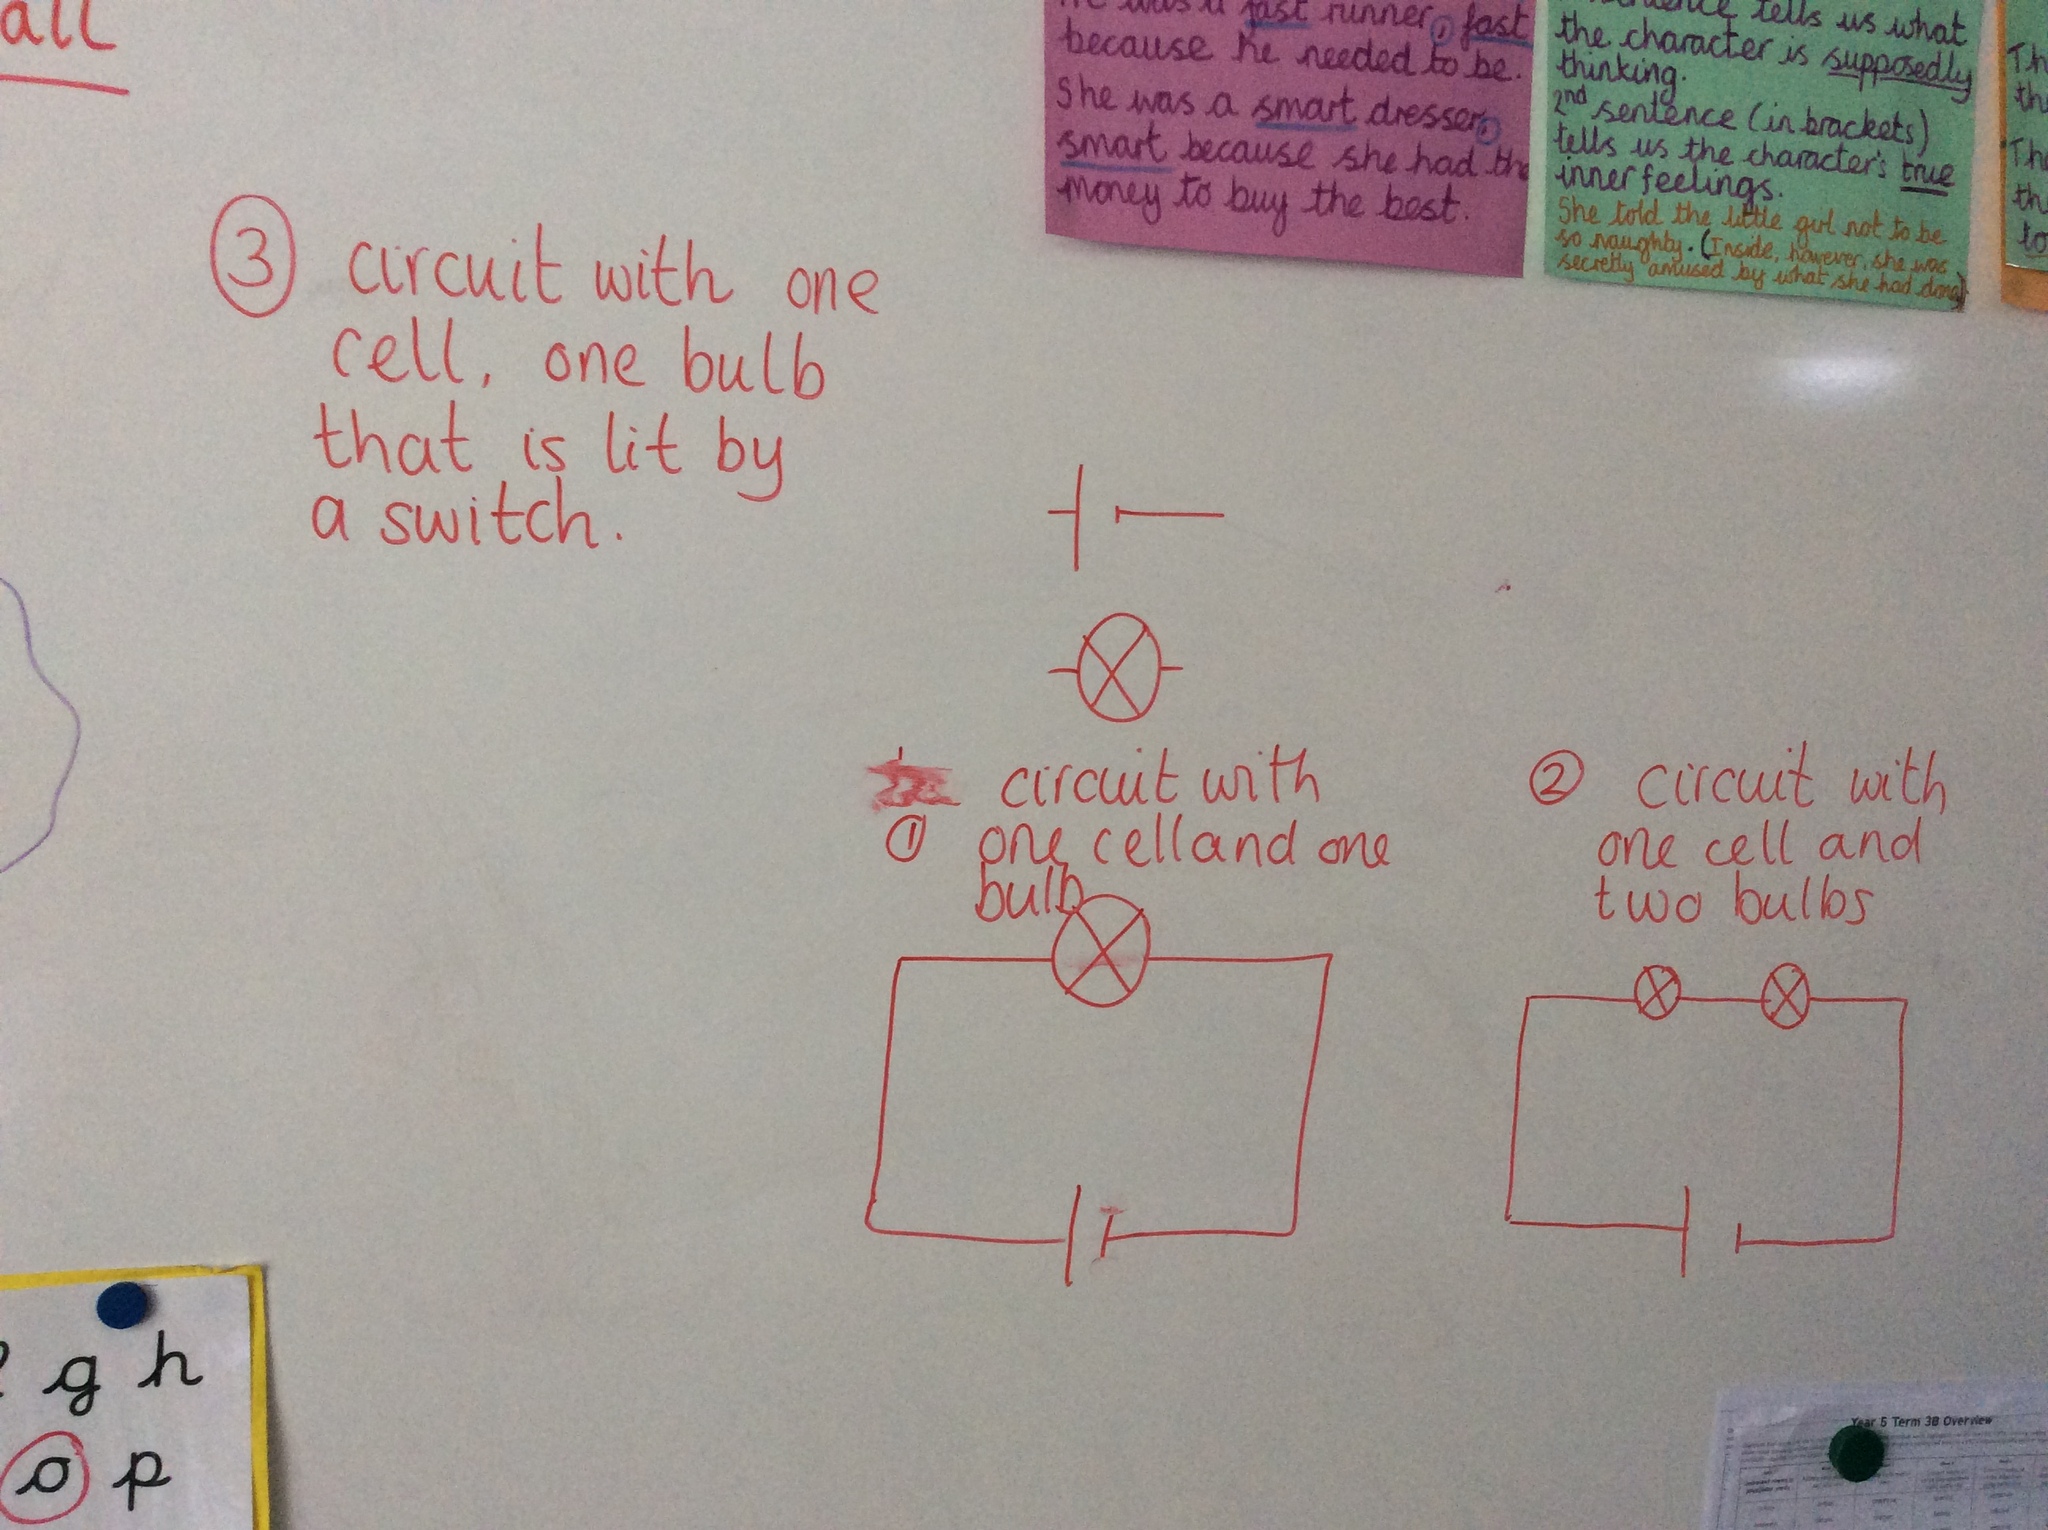 all
was a fast runner, fast
because he needed to be.
She was a smart dresser,
smart because she had the
money to buy the best.
tells us what
the character is supposedly
thinking.
2nd sentence (in brackets)
tells us the character's true
inner feelings.
She told the little girl not to be
so naughty. (Inside, however, she was
secretly amused by what she had done)
Th
th
Th
th
to
③ circuit with one
cell, one bulb
that is lit by
a switch.
circuit with
① one cell and one
bulb
② circuit with
one cell and
two bulbs
g h
o p
Year 5 Term 3B Overview